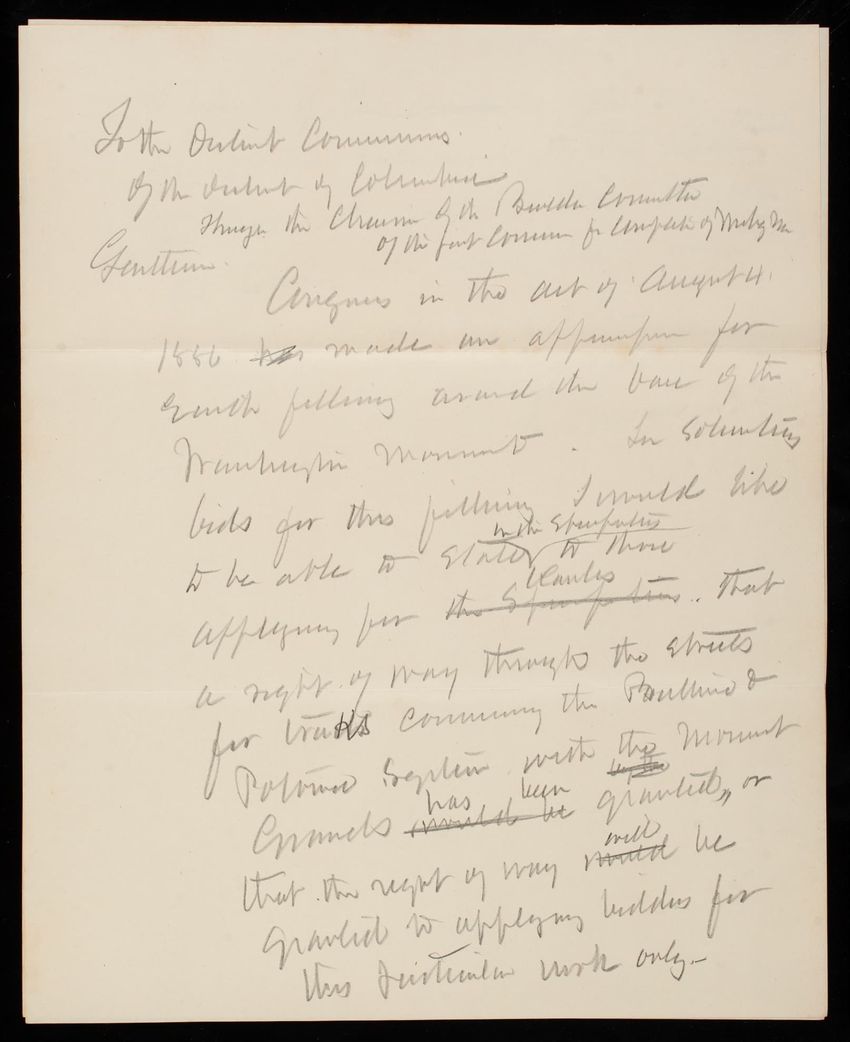 To the District Commrs.
of the District of Columbia
Through the Chairman of the Committee
of the Joint Commn for Completion of Wash'g Mon
Gentlemen.
Congress in the act of August 4.
1886 has made an appropn for
Earth filling around the base of the
Washington Monument. In Soliciting
bids for this filling I would like
in the Specifications
to be able to State to those
blanks
applying for the Specifications. that
a right of way through the streets
for tracks connecting the Baltimore &
Potomac System with the Monument
has been
Grounds would be granted, or
will
that the right of way would be
granted to applying bidders for
this particular work only.–